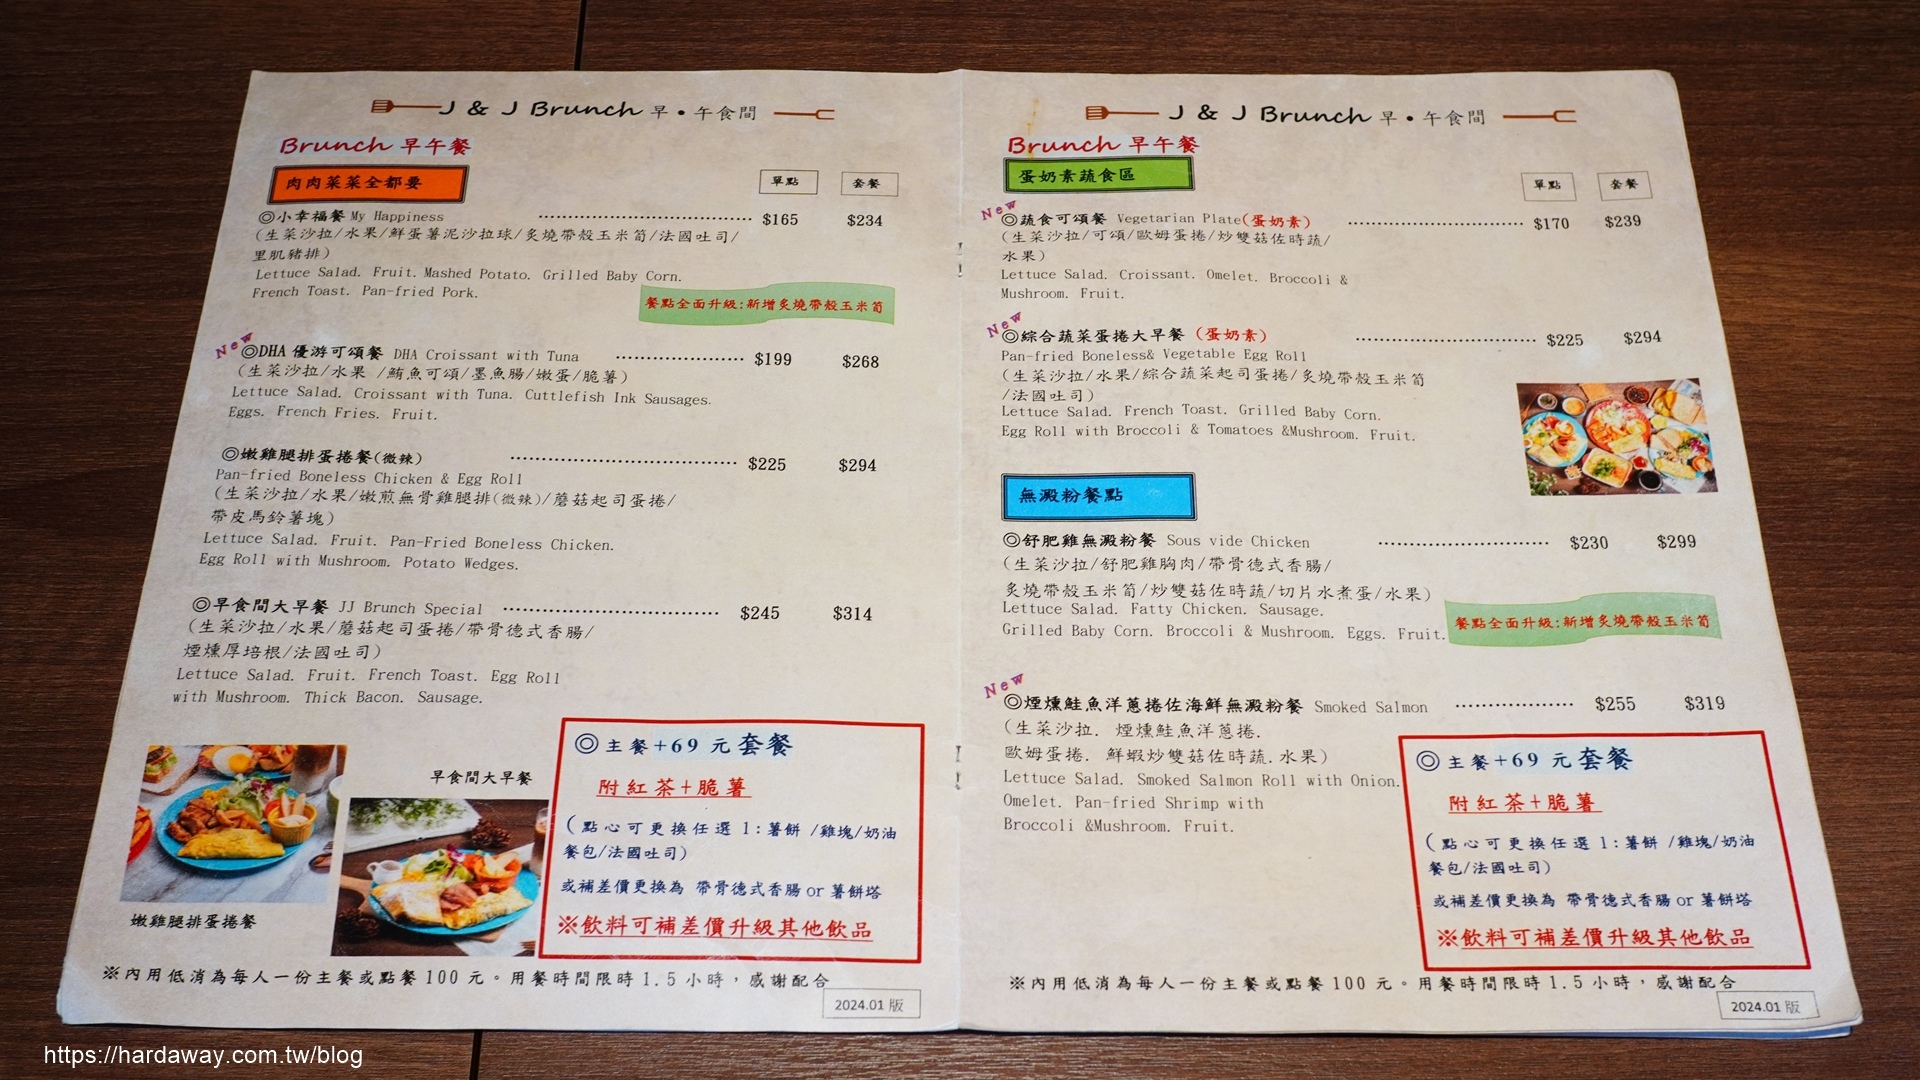 J & J Brunch 早•午食間
Brunch 早午餐
肉肉菜菜全都要
單點 套餐
◎小幸福餐 My Happiness $165 $234
(生菜沙拉/水果/鮮蛋薯泥沙拉球/炙燒帶殼玉米筍/法國吐司/
里肌豬排)
Lettuce Salad. Fruit. Mashed Potato. Grilled Baby Corn.
French Toast. Pan-fried Pork.
餐點全面升級:新增炙燒帶殼玉米筍
New
◎DHA 優游可頌餐 DHA Croissant with Tuna $199 $268
(生菜沙拉/水果 /鮪魚可頌/墨魚腸/嫩蛋/脆薯)
Lettuce Salad. Croissant with Tuna. Cuttlefish Ink Sausages.
Eggs. French Fries. Fruit.
◎嫩雞腿排蛋捲餐(微辣) $225 $294
Pan-fried Boneless Chicken & Egg Roll
(生菜沙拉/水果/嫩煎無骨雞腿排(微辣)/蘑菇起司蛋捲/
帶皮馬鈴薯塊)
Lettuce Salad. Fruit. Pan-Fried Boneless Chicken.
Egg Roll with Mushroom. Potato Wedges.
◎早食間大早餐 JJ Brunch Special $245 $314
(生菜沙拉/水果/蘑菇起司蛋捲/帶骨德式香腸/
煙燻厚培根/法國吐司)
Lettuce Salad. Fruit. French Toast. Egg Roll
with Mushroom. Thick Bacon. Sausage.
早食間大早餐
嫩雞腿排蛋捲餐
◎主餐+69 元套餐
附紅茶+脆薯
(點心可更換任選 1:薯餅 /雞塊/奶油
餐包/法國吐司)
或補差價更換為 帶骨德式香腸 or 薯餅塔
※飲料可補差價升級其他飲品
※內用低消為每人一份主餐或點餐 100 元。用餐時間限時 1.5 小時，感謝配合
2024.01 版
J & J Brunch 早•午食間
Brunch 早午餐
蛋奶素蔬食區
單點 套餐
New
◎蔬食可頌餐 Vegetarian Plate(蛋奶素) $170 $239
(生菜沙拉/可頌/歐姆蛋捲/炒雙菇佐時蔬/
水果)
Lettuce Salad. Croissant. Omelet. Broccoli &
Mushroom. Fruit.
New
◎綜合蔬菜蛋捲大早餐 (蛋奶素) $225 $294
Pan-fried Boneless& Vegetable Egg Roll
(生菜沙拉/水果/綜合蔬菜起司蛋捲/炙燒帶殼玉米筍
/法國吐司)
Lettuce Salad. French Toast. Grilled Baby Corn.
Egg Roll with Broccoli & Tomatoes &Mushroom. Fruit.
無澱粉餐點
◎舒肥雞無澱粉餐 Sous vide Chicken $230 $299
(生菜沙拉/舒肥雞胸肉/帶骨德式香腸/
炙燒帶殼玉米筍/炒雙菇佐時蔬/切片水煮蛋/水果)
Lettuce Salad. Fatty Chicken. Sausage.
Grilled Baby Corn. Broccoli & Mushroom. Eggs. Fruit.
餐點全面升級:新增炙燒帶殼玉米筍
New
◎煙燻鮭魚洋蔥捲佐海鮮無澱粉餐 Smoked Salmon $255 $319
(生菜沙拉. 煙燻鮭魚洋蔥捲.
歐姆蛋捲. 鮮蝦炒雙菇佐時蔬.水果)
Lettuce Salad. Smoked Salmon Roll with Onion.
Omelet. Pan-fried Shrimp with
Broccoli &Mushroom. Fruit.
◎主餐+69 元套餐
附紅茶+脆薯
(點心可更換任選 1:薯餅 /雞塊/奶油
餐包/法國吐司)
或補差價更換為 帶骨德式香腸 or 薯餅塔
※飲料可補差價升級其他飲品
※內用低消為每人一份主餐或點餐 100 元。用餐時間限時 1.5 小時，感謝配合
2024.01 版
https://hardaway.com.tw/blog